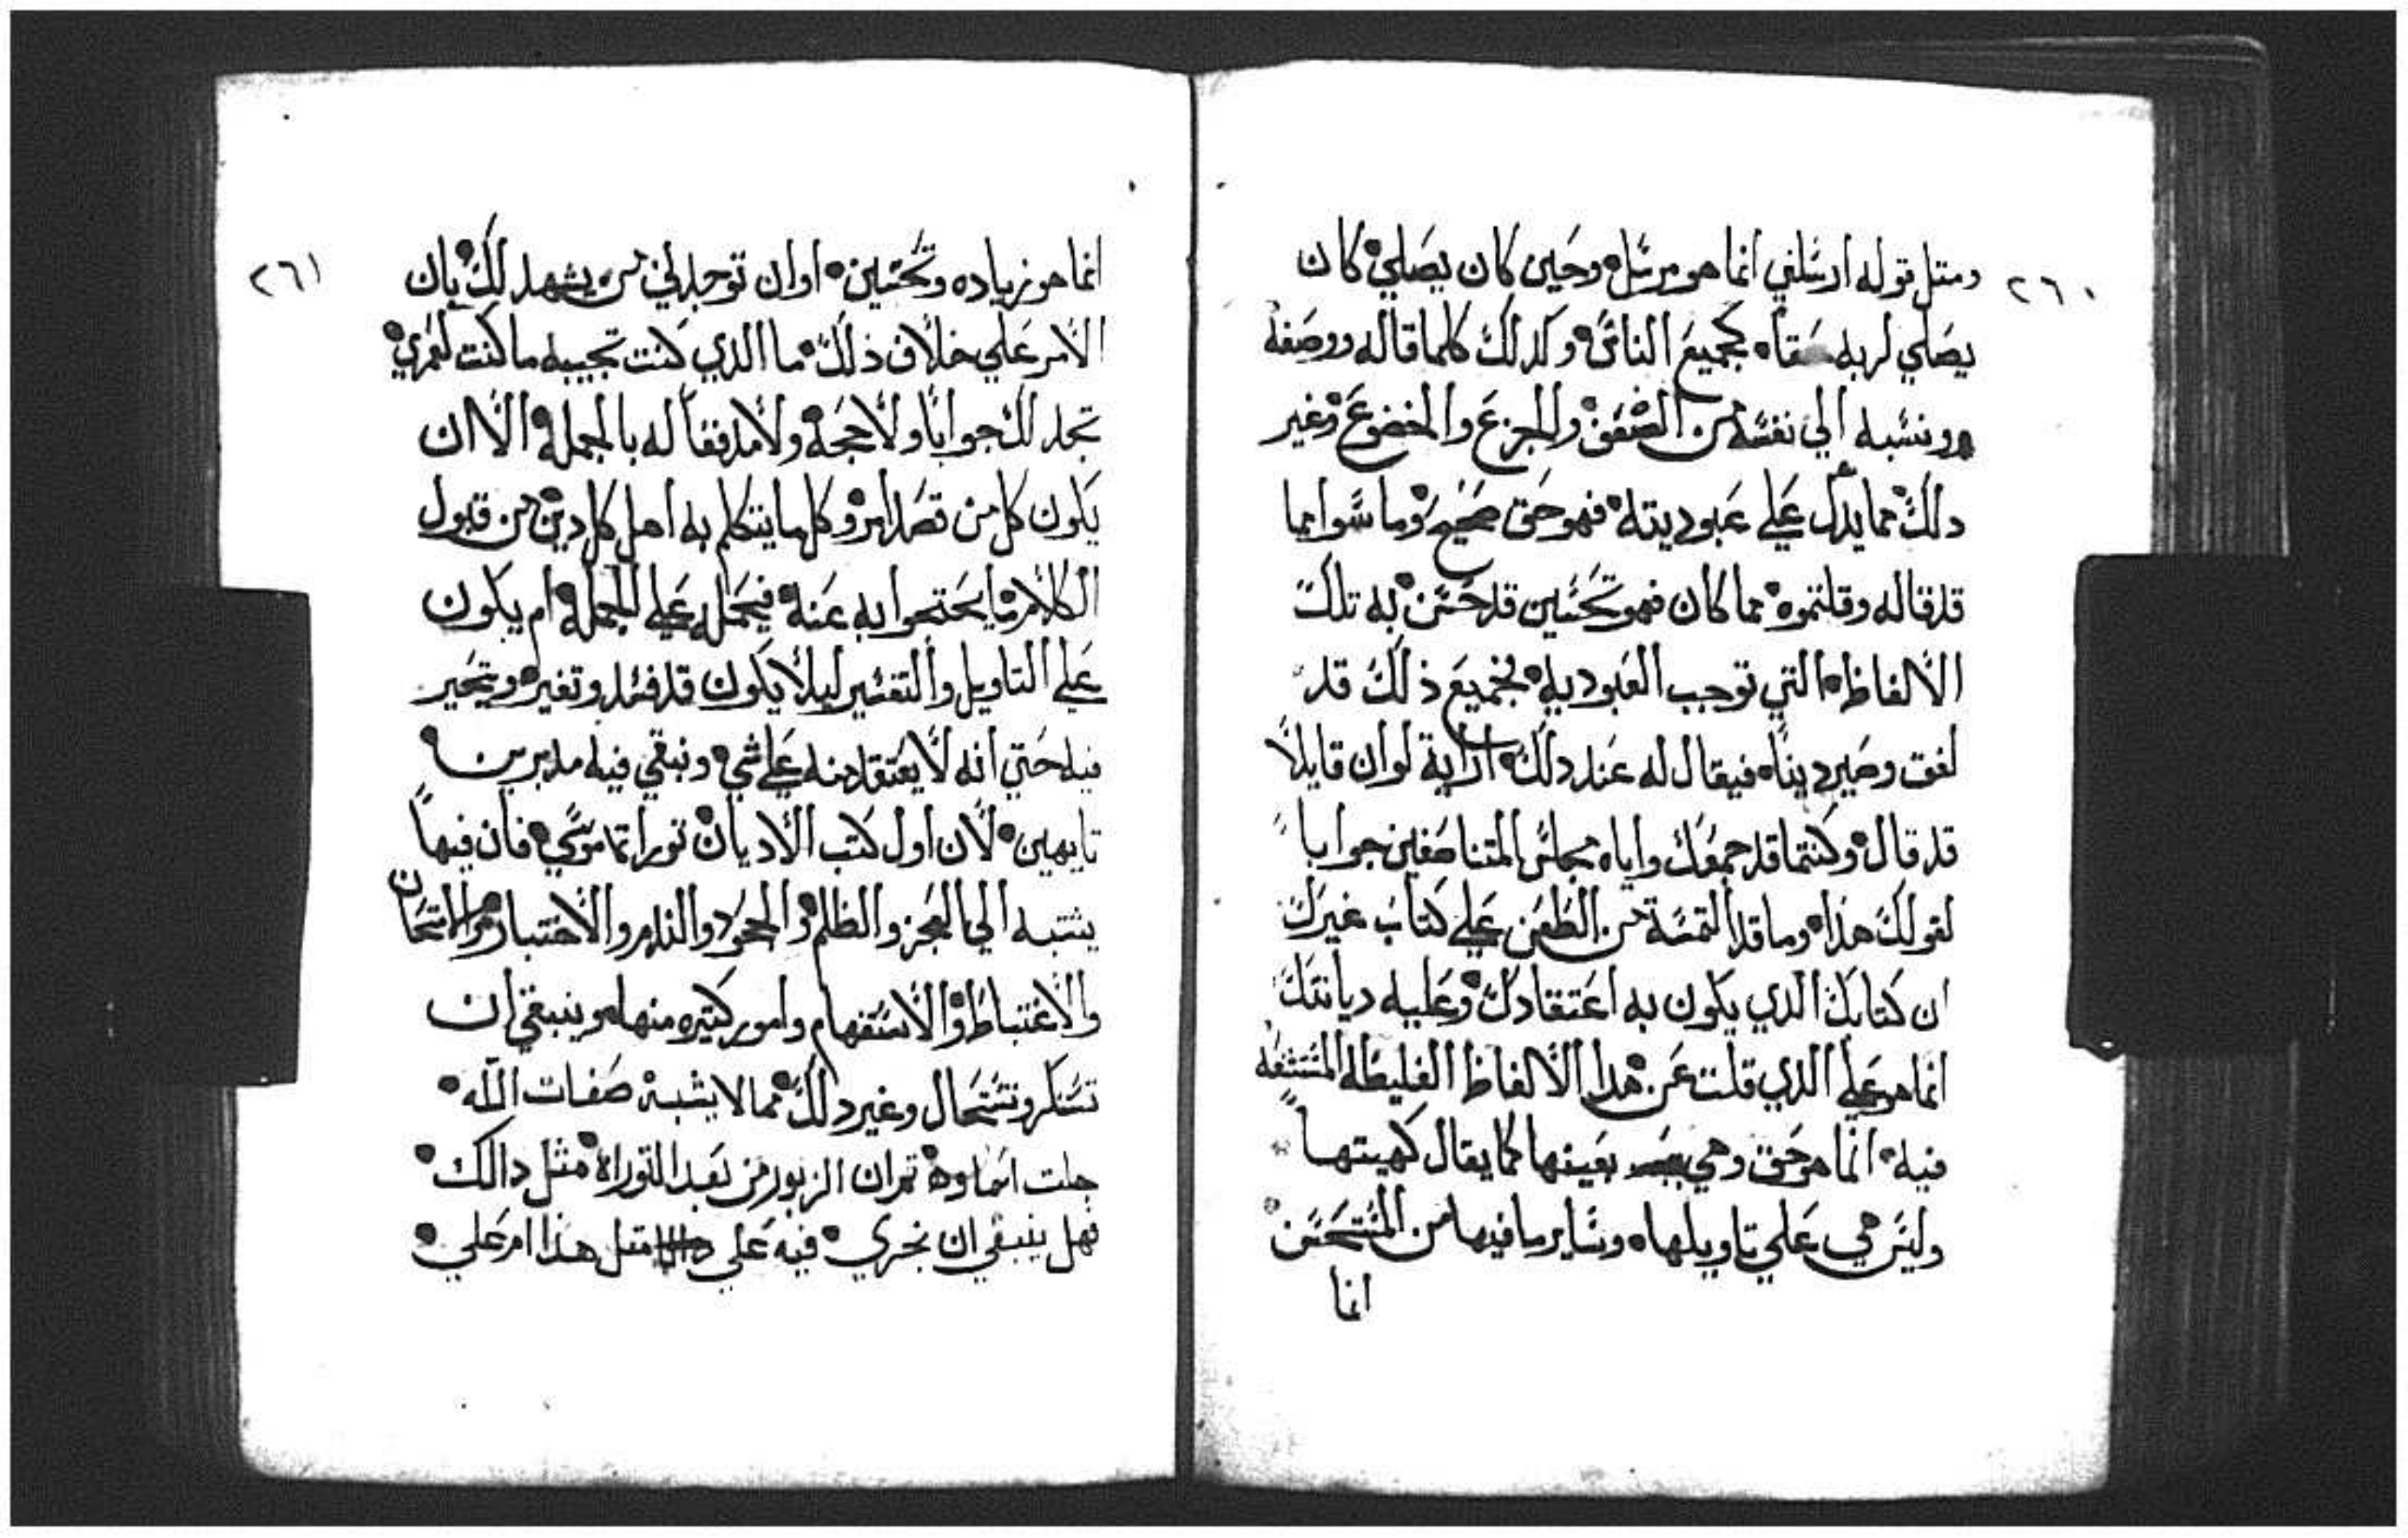 ٢٦٠
ومتل قوله ارسلني انما هو مرسل وحين كان يصلي كان
يصلي لربه حقاه كجميع الناس وكذلك كلما قاله ووصفه
ونسبه الي نفسه من الضعف والجزع والخضوع وغير
دلك مما يدل علي عبوديته فهو حق صحيح وما سوا مما
قد قاله وقلتموه مما كان فهو تحسين قد حسن به تلك
الالفاظ التي توجب العبوديه فجميع ذلك قد
لفق وصير ديناه فيقال له عند دلك اراية لو ان قايلاً
قد قال وكنتما قد جمعك واياه مجالس المتناصفين جواباً
لقولك هذاه وما قد التمسة من الطعن علي كتاب غيرك
ان كتابك الذي يكون به اعتقادك وعليه ديانتك
انما هو علي الذي قلت عن هدا الالفاظ الغليظه المستشفه
فيه انما هو حق وهي بعينها كما يقال كهيتهاً
وليس هي علي تاويلهاه وساير ما فيها من المستحسن
انما
٢٦١
انما هو زياده وتحسين اوان توجدني من يشهد لك بان
الامر علي خلاف ذلك ما الذي كنت تجيبه ما كنت لعمري
تجد لك جواباً ولا حجه ولا مدفقاً له بالجمله الا ان
يكون كل من قصد امر وكل ما يتكلم به اهل كل دين من قبول
الكلام ما يحتجوا به عنه فيحمله علي الجمله ام يكون
علي التاويل والتفسير ليلا يكون قد فسد وتغير ويتحير
فيه حتي انه لا يعتقد منه علي شي ونبقي فيه مدبرين
تايهين لان اول كتب الاديان توراتا موسي فان فيهاً
يشتبه الي العجز والظلم والجحود والندم والاختبار والامتحان
والاغتباط والاستفهام وامور كتيره منهاه وينبغي ان
تستكر وتستحال وغير دلك مما لا يشبه صفات الله
جلت اسماوه تم ان الزبور من بعد التوراة مثل دالك
فهل ينبغي ان نجري فيه علي متل هذا امر علي